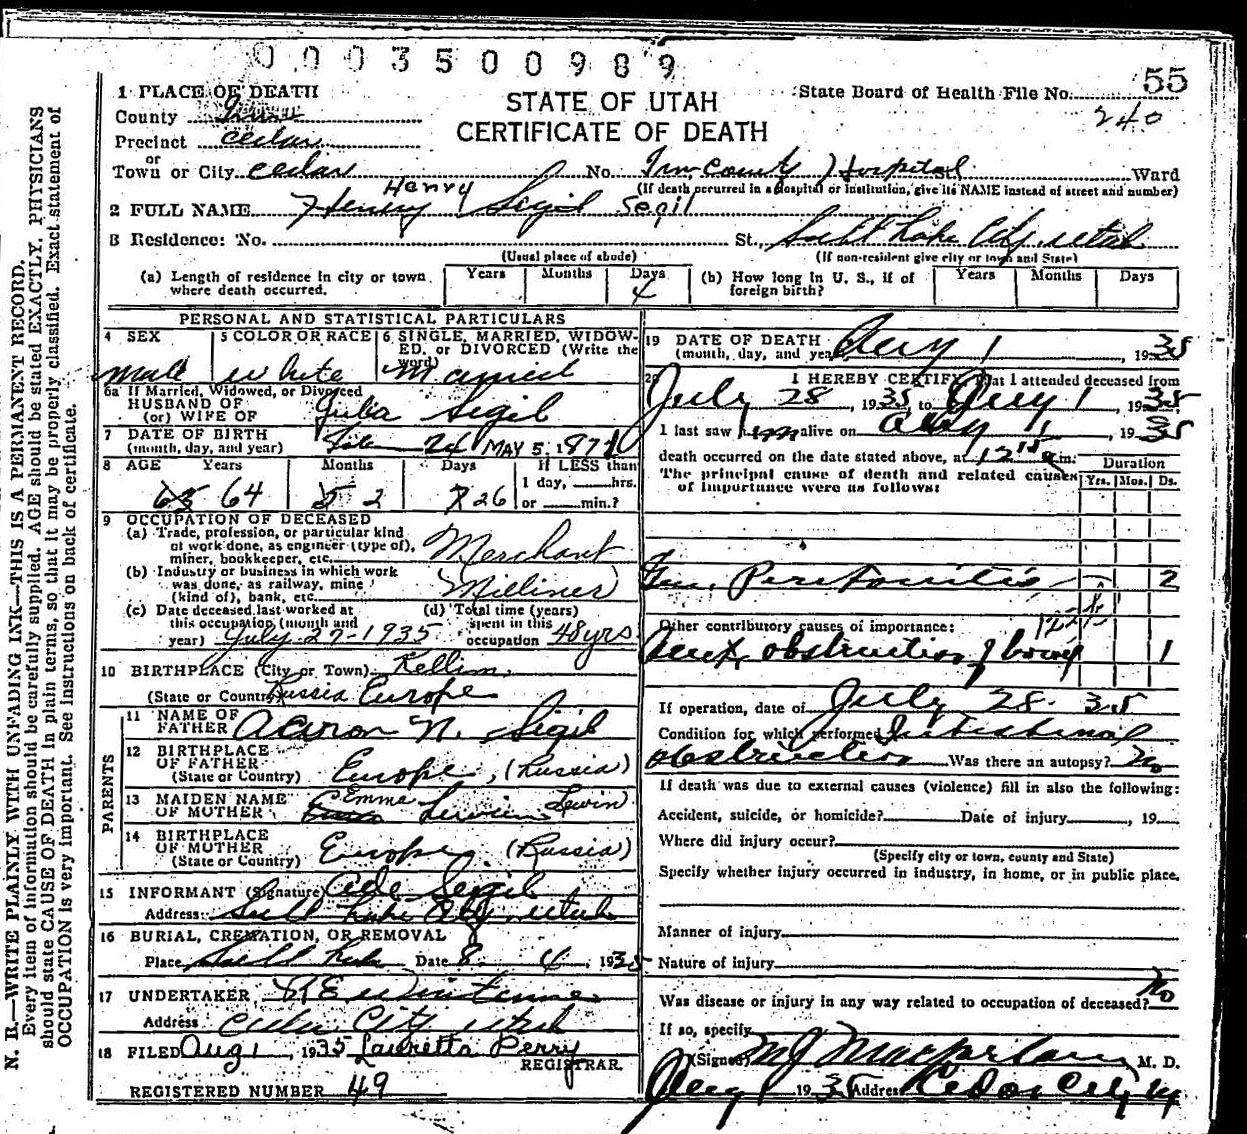 0003500989
55
1 PLACE OF DEATH
STATE OF UTAH
State Board of Health File No.
240
County
CERTIFICATE OF DEATH
Precinct Cedar
or
Town or City Cedar No. Iron County Hospital Ward
(If death occurred in a Hospital or Institution, give its NAME instead of street and number)
Henry
2 FULL NAME Henry Sigil Segil
3 Residence: No. St., Salt Lake City, Utah
(Usual place of abode) (If non-resident give city or town and State)
(a) Length of residence in city or town where death occurred. Years Months Days 4
(b) How long in U. S., if of foreign birth? Years Months Days
PERSONAL AND STATISTICAL PARTICULARS
4 SEX Male
5 COLOR OR RACE White
6 SINGLE, MARRIED, WIDOWED, or DIVORCED (Write the word) Married
6a If Married, Widowed, or Divorced
HUSBAND OF
(or) WIFE OF Julia Sigil
7 DATE OF BIRTH
(month, day, and year) 24 MAY 5, 1871
8 AGE Years Months Days If LESS than
65 64 5 2 7 26 1 day, hrs.
or min.?
9 OCCUPATION OF DECEASED
(a) Trade, profession, or particular kind
of work done, as engineer (type of),
miner, bookkeeper, etc. Merchant
(b) Industry or business in which work
was done, as railway, mine
(kind of), bank, etc. Milliner
(c) Date deceased last worked at
this occupation (month and
year) July-27-1935
(d) Total time (years)
spent in this
occupation 48 yrs.
10 BIRTHPLACE (City or Town) Kellem,
(State or Country) Russia Europe
PARENTS
11 NAME OF
FATHER Aaron N. Sigil
12 BIRTHPLACE
OF FATHER
(State or Country) Europe, (Russia)
13 MAIDEN NAME
OF MOTHER Emma Lewin
14 BIRTHPLACE
OF MOTHER
(State or Country) Europe, (Russia)
15 INFORMANT (Signature) Segil
Address: Salt Lake City, Utah
16 BURIAL, CREMATION, OR REMOVAL
Place Salt Lake Date 8 4, 1935
17 UNDERTAKER
Address Cedar City Utah
18 FILED Aug 1, 1935 Lauretta Perry
REGISTRAR.
REGISTERED NUMBER 49
19 DATE OF DEATH
(month, day, and year) Aug 1, 1935
20 I HEREBY CERTIFY, That I attended deceased from
July 28, 1935 to Aug 1, 1935
I last saw him alive on Aug 1, 1935
death occurred on the date stated above, at 12 15 a m.
The principal cause of death and related causes
of importance were as follows:
Duration
Yrs. Mos. Ds.
Gen. Peritonitis 2
122 b
Other contributory causes of importance:
Acute obstruction of bowel 1
If operation, date of July 28. 35
Condition for which performed Intestinal
obstruction Was there an autopsy? No
If death was due to external causes (violence) fill in also the following:
Accident, suicide, or homicide? Date of injury , 19
Where did injury occur?
(Specify city or town, county and State)
Specify whether injury occurred in industry, in home, or in public place.
Manner of injury
Nature of injury
Was disease or injury in any way related to occupation of deceased? No
If so, specify
(Signed) M J Macfarlane, M. D.
Aug 1 1935 Address Cedar City, Ut
N. B.—WRITE PLAINLY WITH UNFADING INK—THIS IS A PERMANENT RECORD.
Every item of information should be carefully supplied. AGE should be stated EXACTLY. PHYSICIANS
should state CAUSE OF DEATH in plain terms, so that it may be properly classified. Exact statement of
OCCUPATION is very important. See instructions on back of certificate.